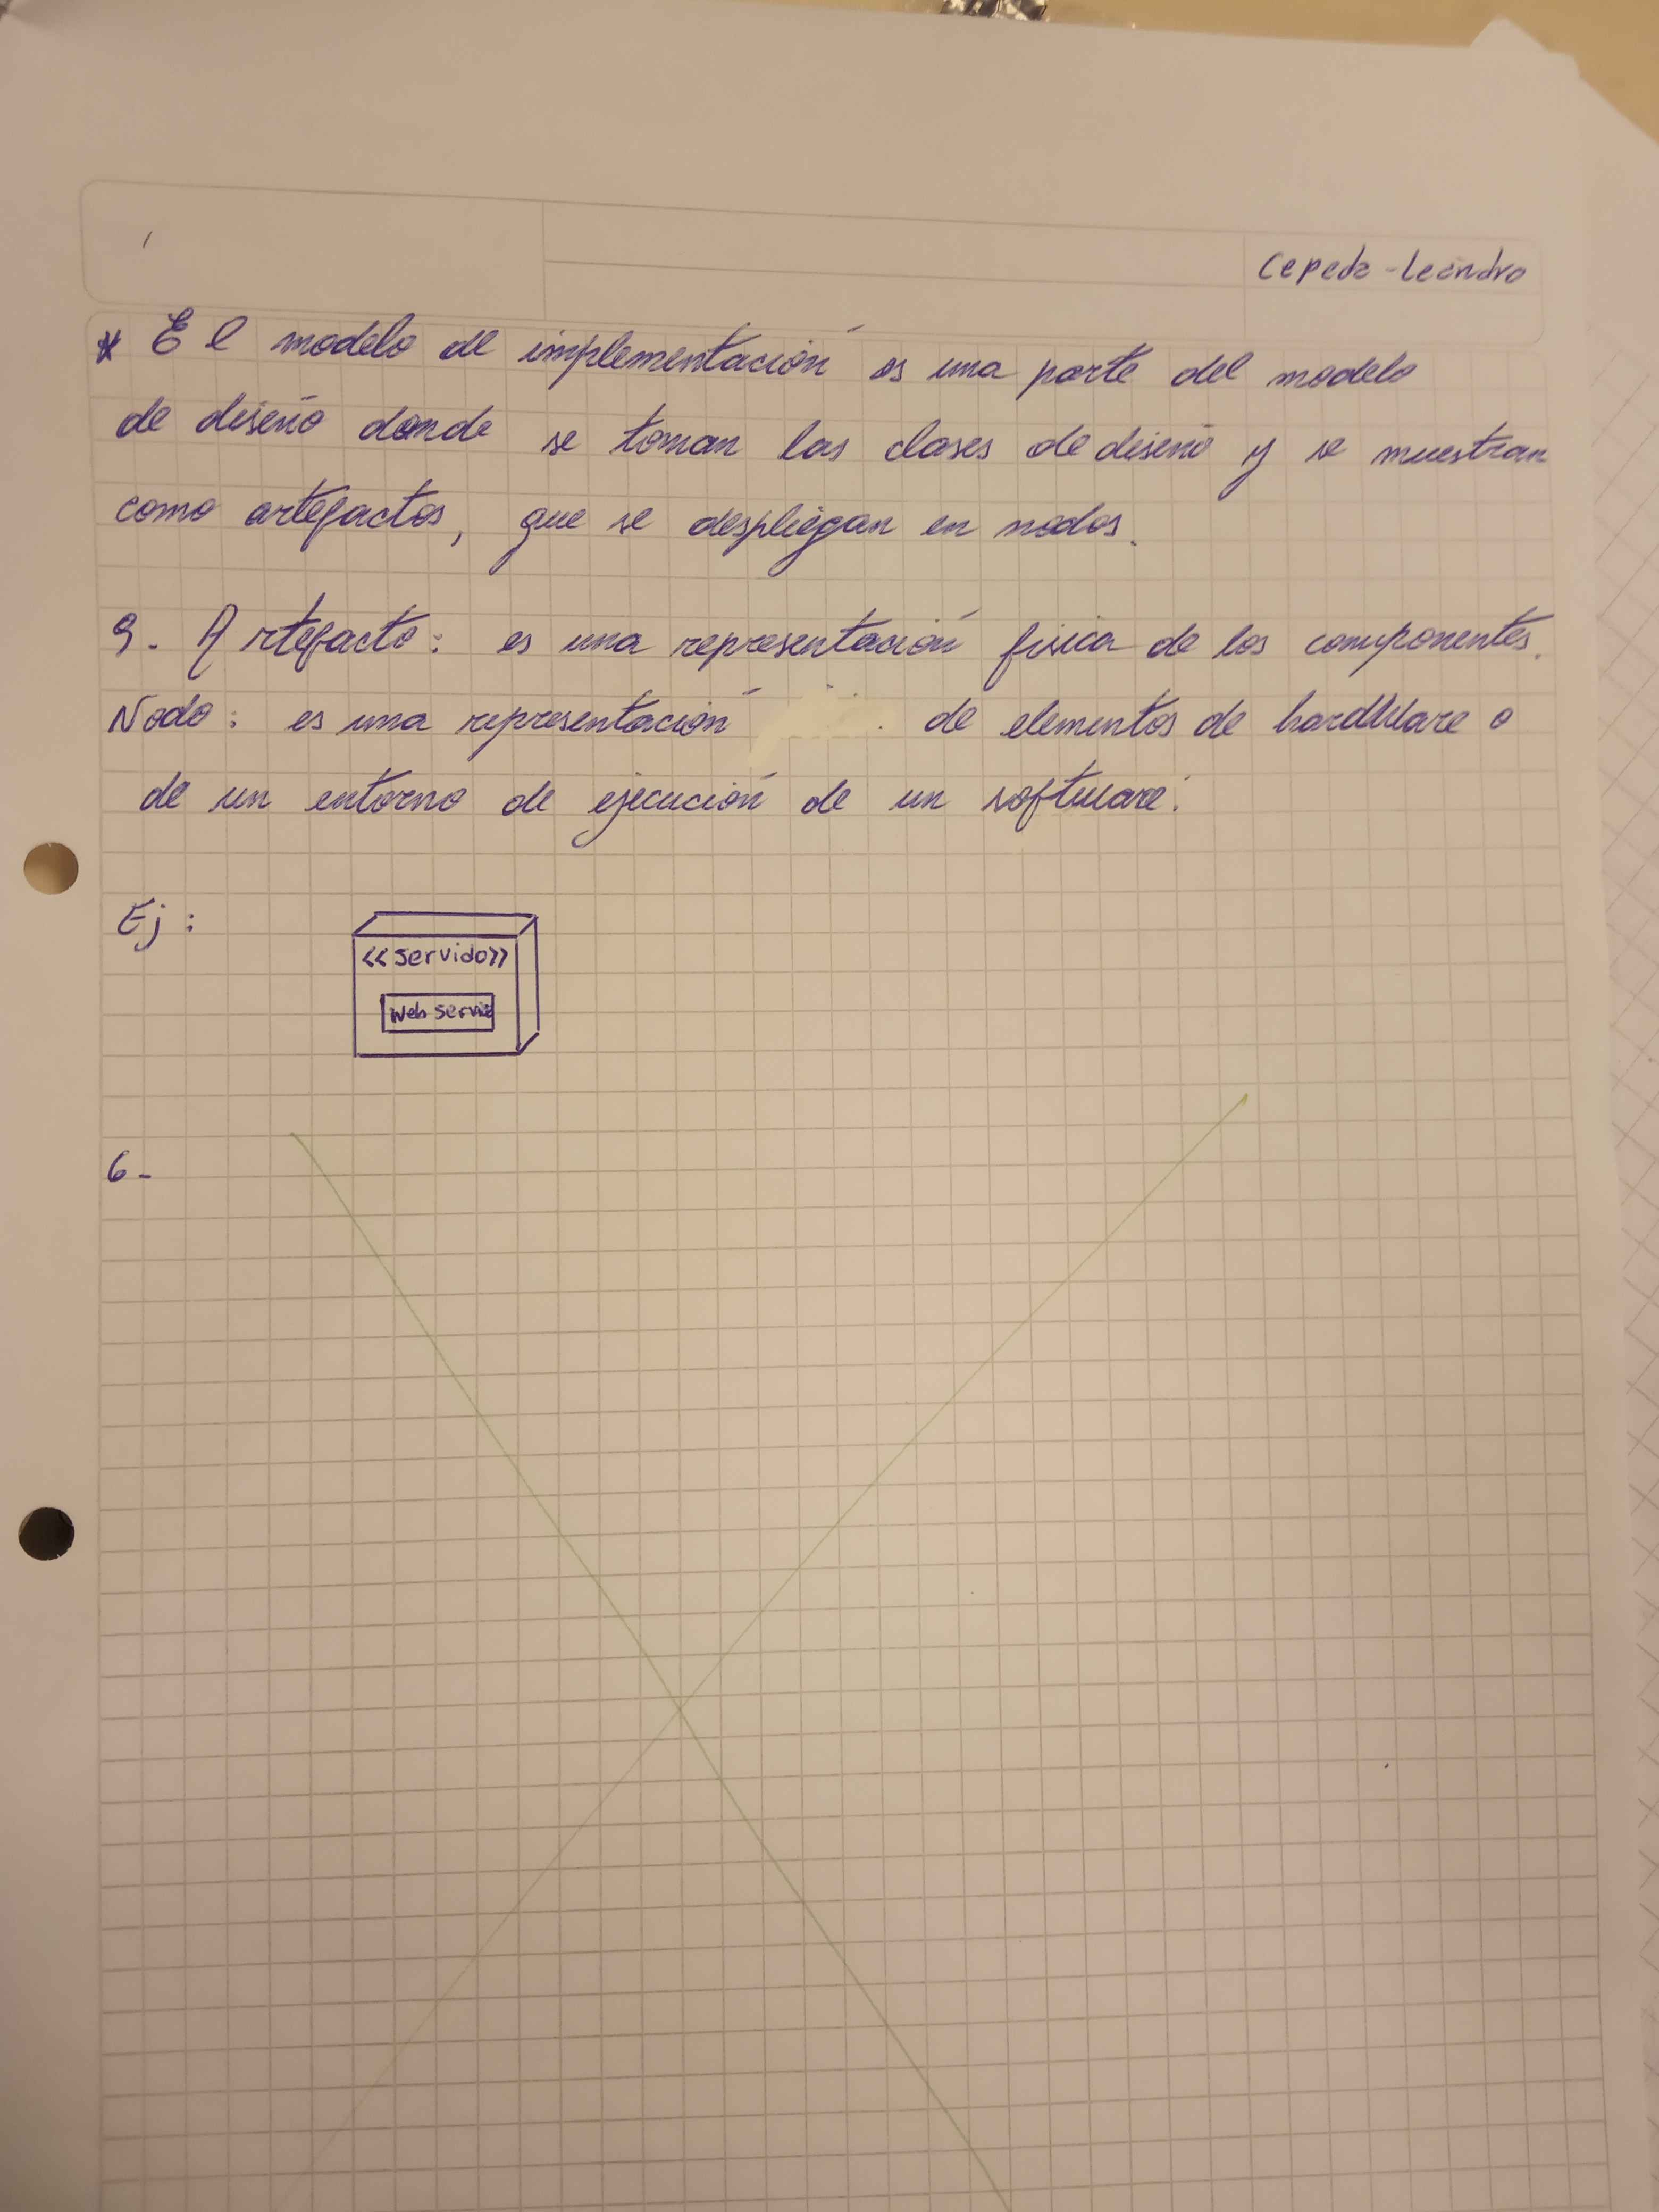 Cepeda - Leandro
* El modelo de implementación es una parte del modelo
de diseño donde se toman las clases de diseño y se muestran
como artefactos, que se despliegan en nodos.
9. Artefacto: es una representación fisica de los componentes.
Nodo: es una representación de elementos de hardware o
de un entorno de ejecución de un software.
Ej:
<<servido>>
Web servic
6-